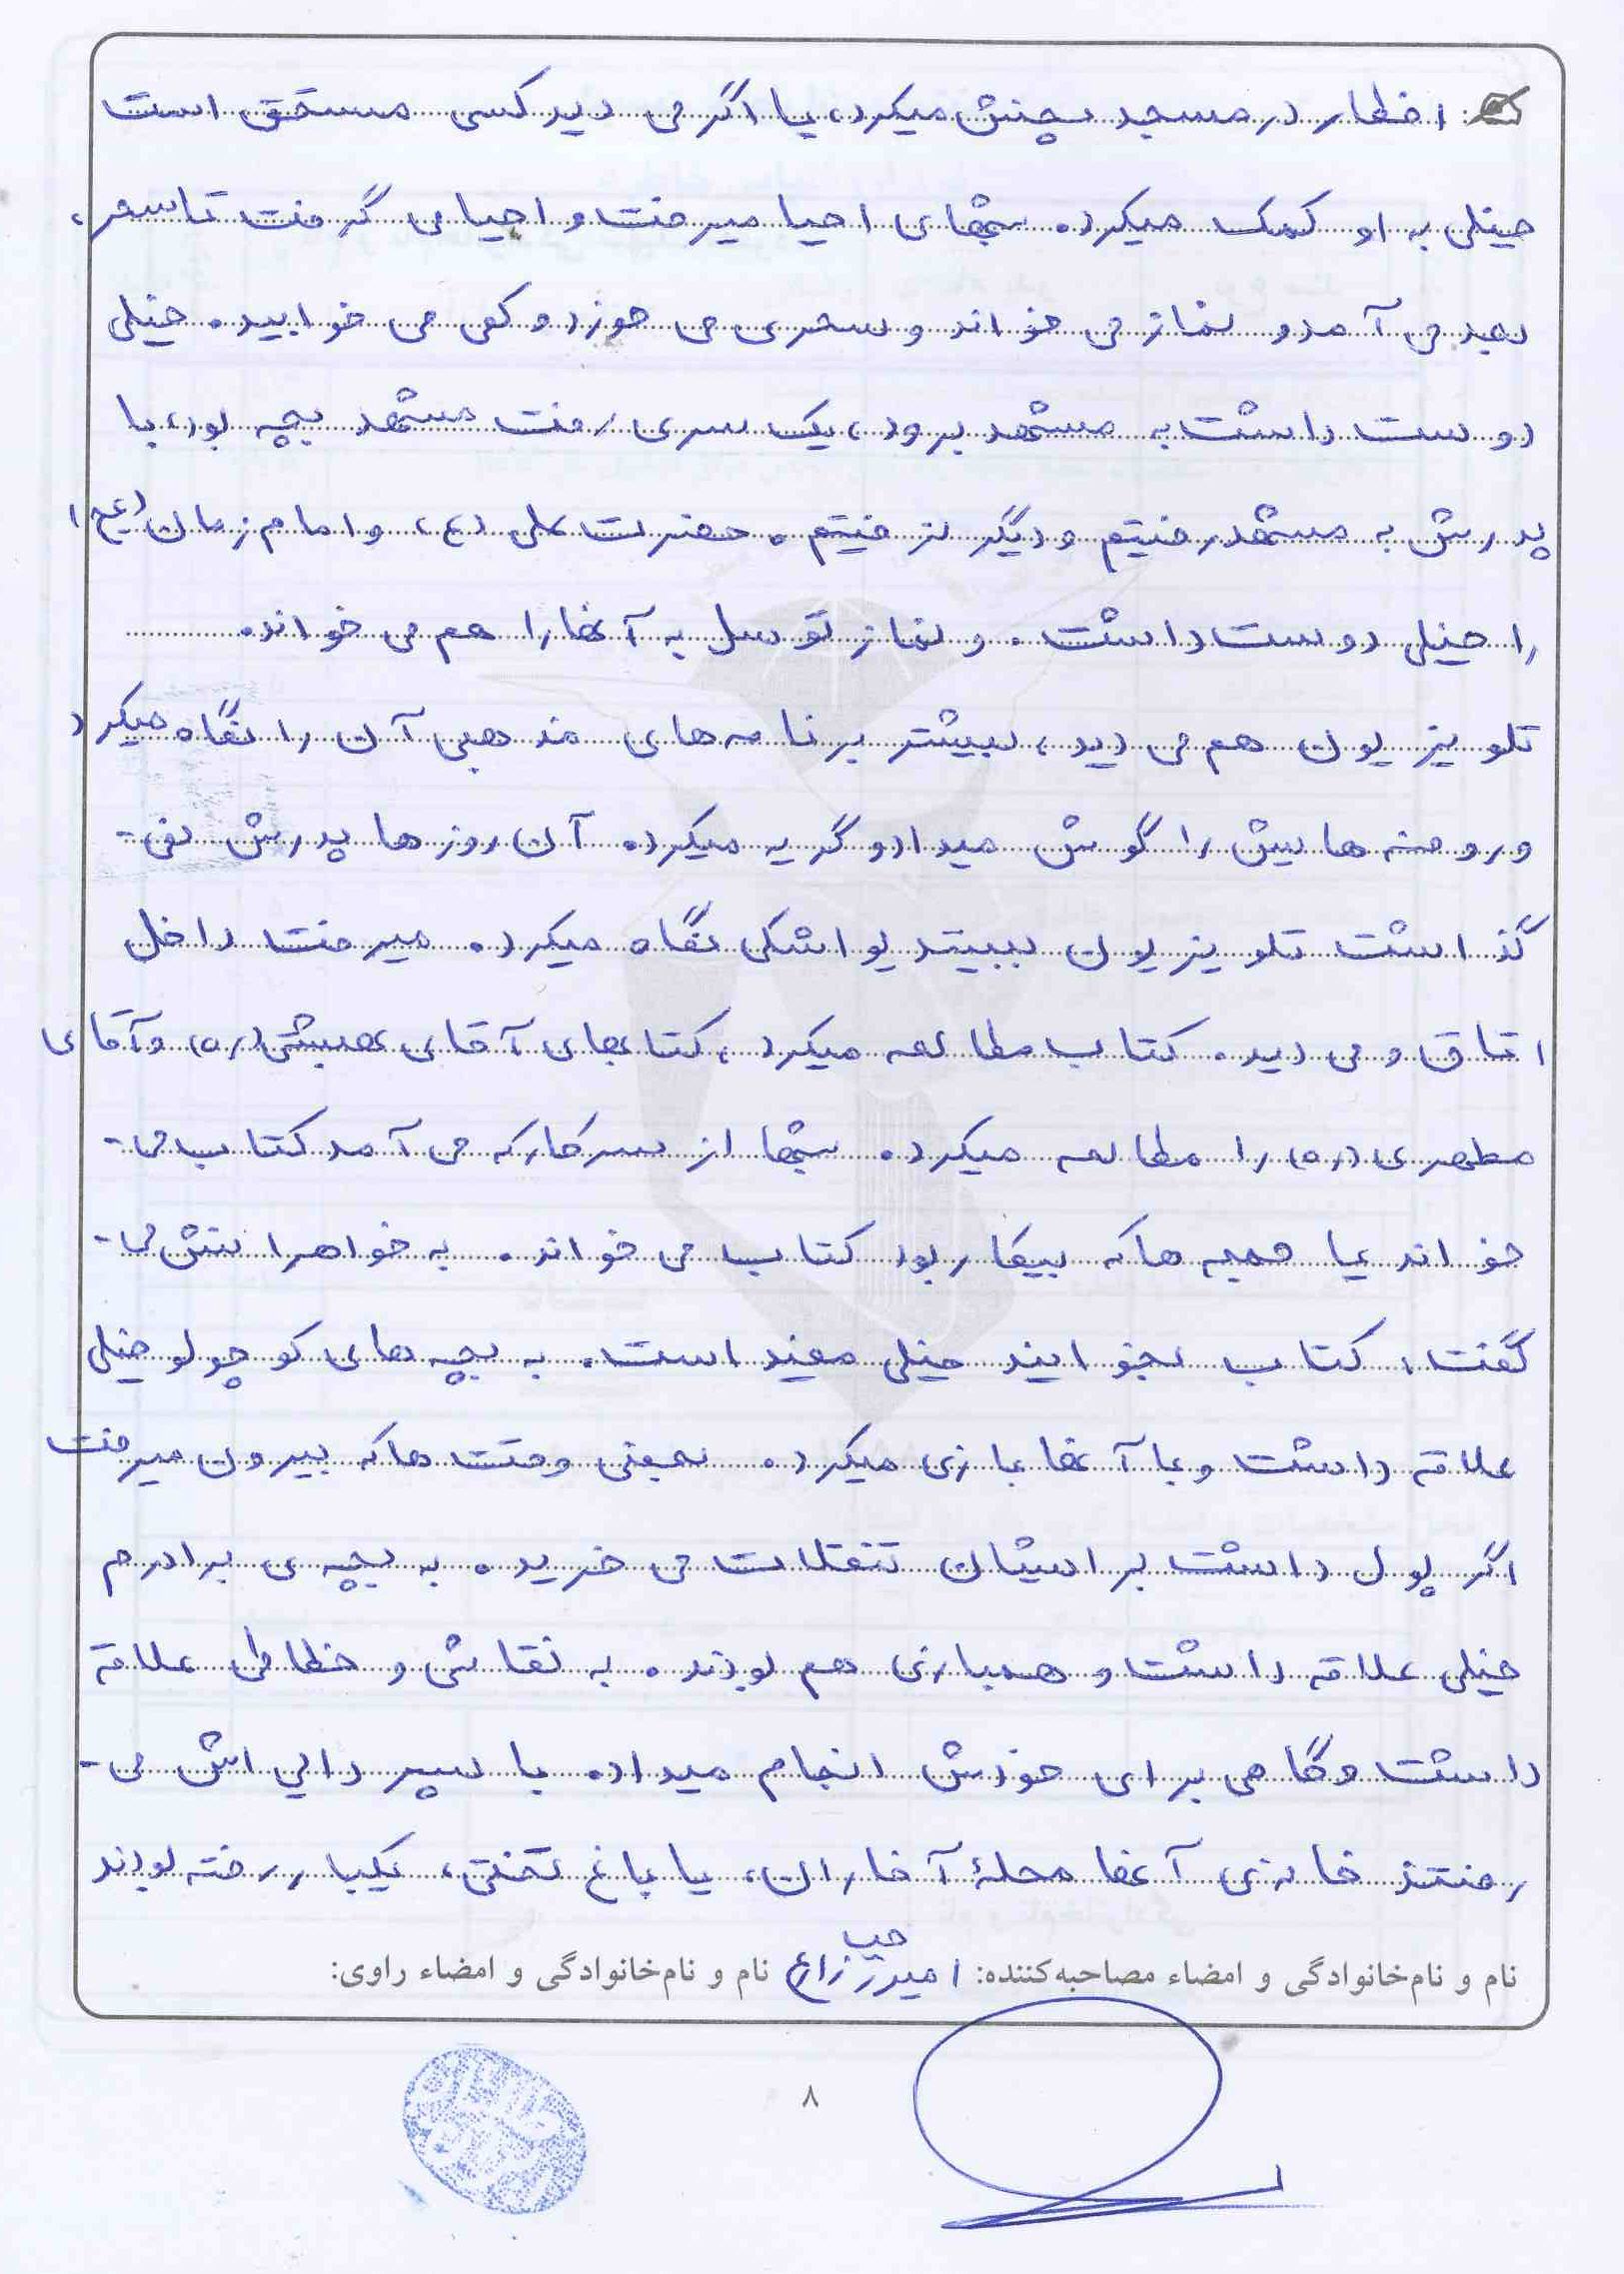 افطار در مسجد پخش میکرد، یا اگر می دید کسی مستحق است
خیلی به او کمک میکرد. شبهای احیا میرفت و احیا می گرفت تا سحر،
بعد می آمد و نماز می خواند و سحری می خورد و کمی می خوابید. خیلی
دوست داشت به مشهد برود، یک سری رفت مشهد بچه بود، با
پدرش به مشهد رفتیم و دیگر نرفتیم. حضرت علی (ع) و امام زمان (عج)
را خیلی دوست داشت. و نماز توسل به آنها را هم می خواند.
تلویزیون هم می دید، بیشتر برنامه های مذهبی آن را نگاه میکرد
و روضه هایش را گوش میداد و گریه میکرد. آن روزها پدرش نمی-
گذاشت تلویزیون ببیند یواشکی نگاه میکرد. میرفت داخل
اتاق و می دید. کتاب مطالعه میکرد، کتابهای آقای بهشتی (ره) و آقای
مطهری (ره) را مطالعه میکرد. شبها از سرکار که می آمد کتاب می-
خواند یا جمعه ها که بیکار بود کتاب می خواند. به خواهرانش می-
گفت: کتاب بخوانید خیلی مفید است. به بچه های کوچولو خیلی
علاقه داشت و با آنها بازی میکرد. بعضی وقت ها که بیرون میرفت
اگر پول داشت برایشان تنقلات می خرید. به بچه ی برادرم
خیلی علاقه داشت و همبازی هم بودند. به نقاشی و خطاطی علاقه
داشت و گاهی برای خودش انجام میداد. با پسر دایی اش می-
رفتند خانه ی آنها محلهٔ آخاران، یا باغ تختی، یکبار رفته بودند
نام و نام‌خانوادگی و امضاء مصاحبه‌کننده: امیر زارع نام و نام‌خانوادگی و امضاء راوی:
۸